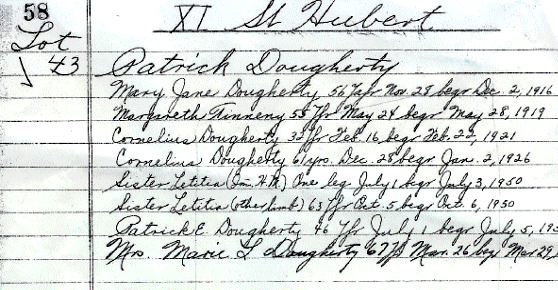 58
XI St Hubert
Lot
43
Patrick Dougherty
Mary Jane Dougherty 56 Jahr Nov. 29 begr Dec. 2, 1916
Margareth Finneny 55 Jhr May 24 begr May 28, 1919
Cornelius Dougherty 32 Jhr Feb. 16, begr Feb. 22, 1921
Cornelius Dougherty 61 yrs. Dec. 28 begr Jan. 2, 1926
Sister Letitia One leg July 1 begr July 3, 1950
Sister Letitia (other limb) 63 Jhr Oct. 5 begr Oct. 6, 1950
Patrick E. Dougherty 46 Jhr July 1 begr July 5, 195
Mrs. Marie L. Dougherty 67 Jhr Mar. 26 begr Mar 29,